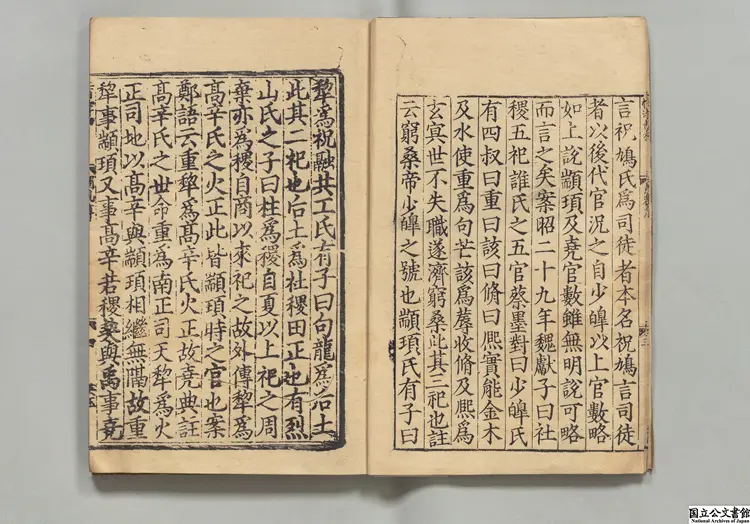 言祝鳩氏爲司徒者本名祝鳩言司徒
者以後代官況之自少皥以上官數略
如上說顓頊及堯官數雖無明說可略
而言之矣案昭二十九年魏獻子曰社
稷五祀誰氏之五官蔡墨對曰少皥氏
有四叔曰重曰該曰脩曰熈實能金木
及水使重爲句芒該爲蓐收脩及熈爲
玄冥世不失職遂濟窮桑此其三祀也註
云窮桑帝少皥之號也顓頊氏有子曰
犂爲祝融共工氏有子曰句龍爲后土
此其二祀也后土爲社稷田正也有烈
山氏之子曰柱爲稷自夏以上祀之周
棄亦爲稷自商以來祀之故外傳犂爲
高辛氏之火正此皆顓頊時之官也案
鄭語云重犂爲高辛氏火正故堯典註
高辛氏之世命重爲南正司天犂爲火
正司地以高辛與顓頊相繼無隔故重
犂事顓頊又事高辛若稷𢍆與禹事堯
国立公文書館
National Archives of Japan